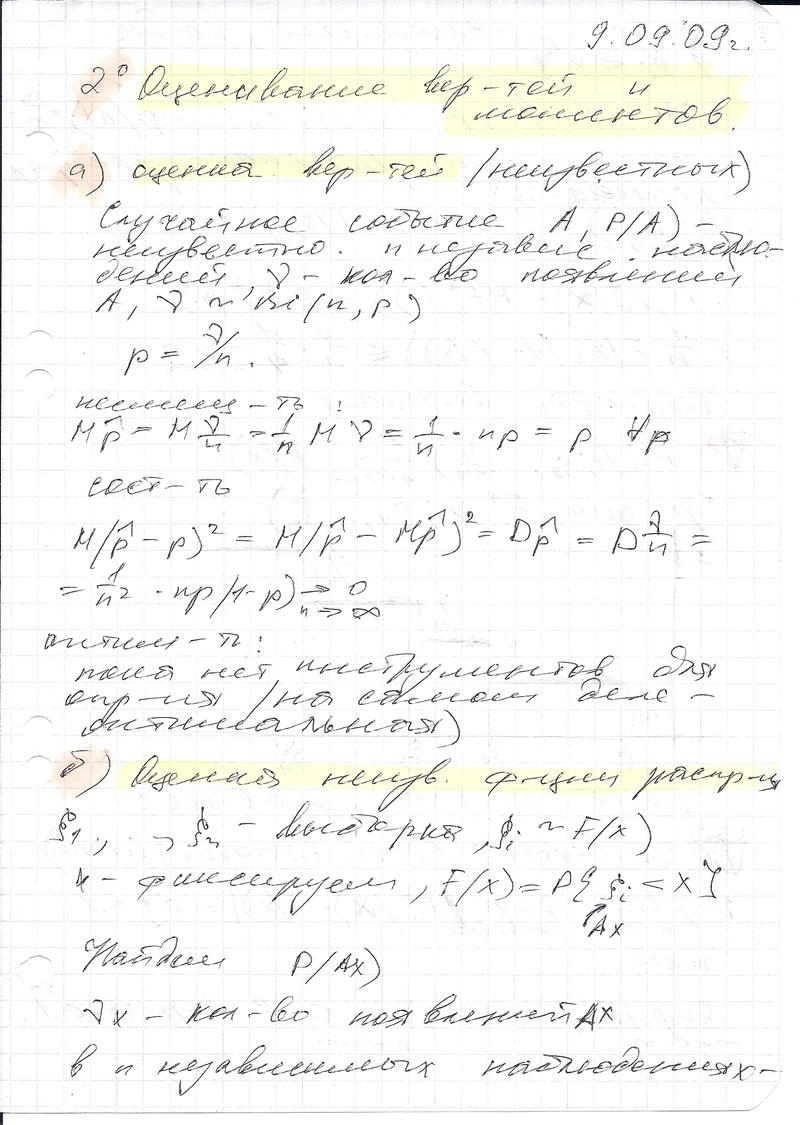 9.09.09г.
2° Оценивание вер-тей и
моментов.
а) оценка вер-тей (неизвестных)
Случайное событие A, P(A) -
неизвестно. n независ. наблю-
дений, ν - кол-во появлений
A, ν ~ Bi(n, p)
p = ν/n.
несмещ-ть:
Mp̂ = M ν/n = 1/n Mν = 1/n · np = p ∀p
сост-ть
M(p̂ - p)² = M(p̂ - Mp̂)² = Dp̂ = D ν/n =
= 1/n² · np(1-p) → 0 n→∞
оптим-ть:
пока нет инструментов для
опр-ия (на самом деле -
оптимальная)
б) Оценка неизв. ф-ции распр-ия
ξ1, .., ξn - выборка, ξi ~ F(x)
x - фиксируем, F(x) = P{ξi < x}
Ax
Найдем P(Ax)
νx - кол-во появлений Ax
в n независимых наблюдениях-